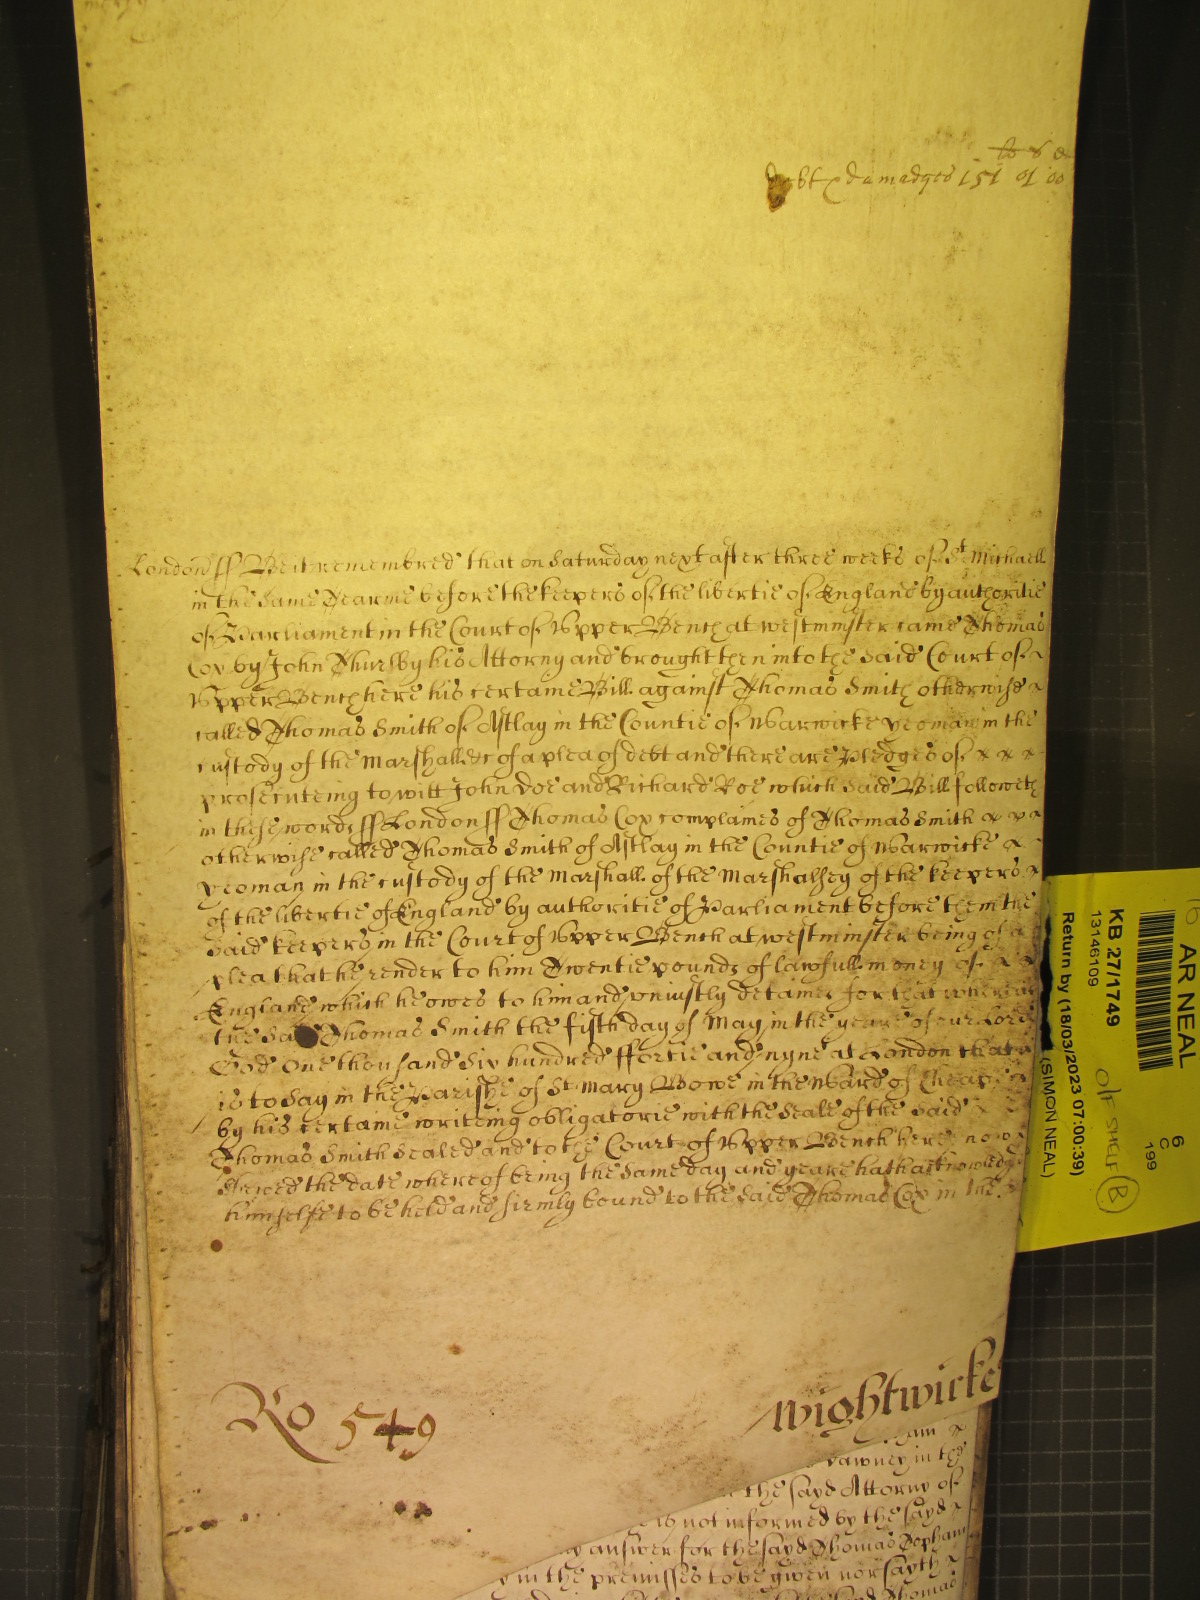 li s d
debt & damadges 151 01 00
London ss Be it remembred that on Saturday next after three weeks of St Michaell
in this same Tearme before the keepers of the libertie of England by authoritie
of Parliament in the Court of Upper Bench at westminster came Thomas
Cox by John Thursby his Attorny and brought then into the said Court of
Upper Bench here his certaine Bill against Thomas Smith otherwise
called Thomas Smith of Astlay in the Countie of Warwicke yeoman in the
custody of the Marshall &c of a plea of debt and there are Pledges of
prosecuteing to witt John Doe and Richard Roe which said Bill followeth
in these words ss London ss Thomas Cox complaines of Thomas Smith
otherwise called Thomas Smith of Astlay in the Countie of Warwicke
yeoman in the custody of the Marshall of the Marshalsey of the keepers
of the libertie of England by authoritie of Parliament before them the
said keepers in the Court of Upper Bench at westminster being of a
plea that he render to him Twentie pounds of lawfull money of
England which he owes to him and uniustly detaines for that whereas
the Sa Thomas Smith the fifth day of May in the yeare of our Lord
God One thousand Six hundred ffortie and nyne at London that
is to Say in the Parishe of St Mary Bowe in the Ward of Cheape
by his certaine writeing obligatorie with the Seale of the Said
Thomas Smith Sealed and to the Court of Upper Bench here now
shewed the date whereof being the same day and yeare hath acknowledged
himselfe to be held and firmly bound to the Said Thomas Cox in the
Ro 549
Wightwicke
in the
the sayd Attorny of
is not informed by the sayd
answer for the sayd Thomas Popham
in the premisses to be given nor sayth
Thomas
AR NEAL
KB 27/1749
13146109
Return by (18/03/2023 07:00:39)
(SIMON NEAL)
O/F SHELF B
6
C
199